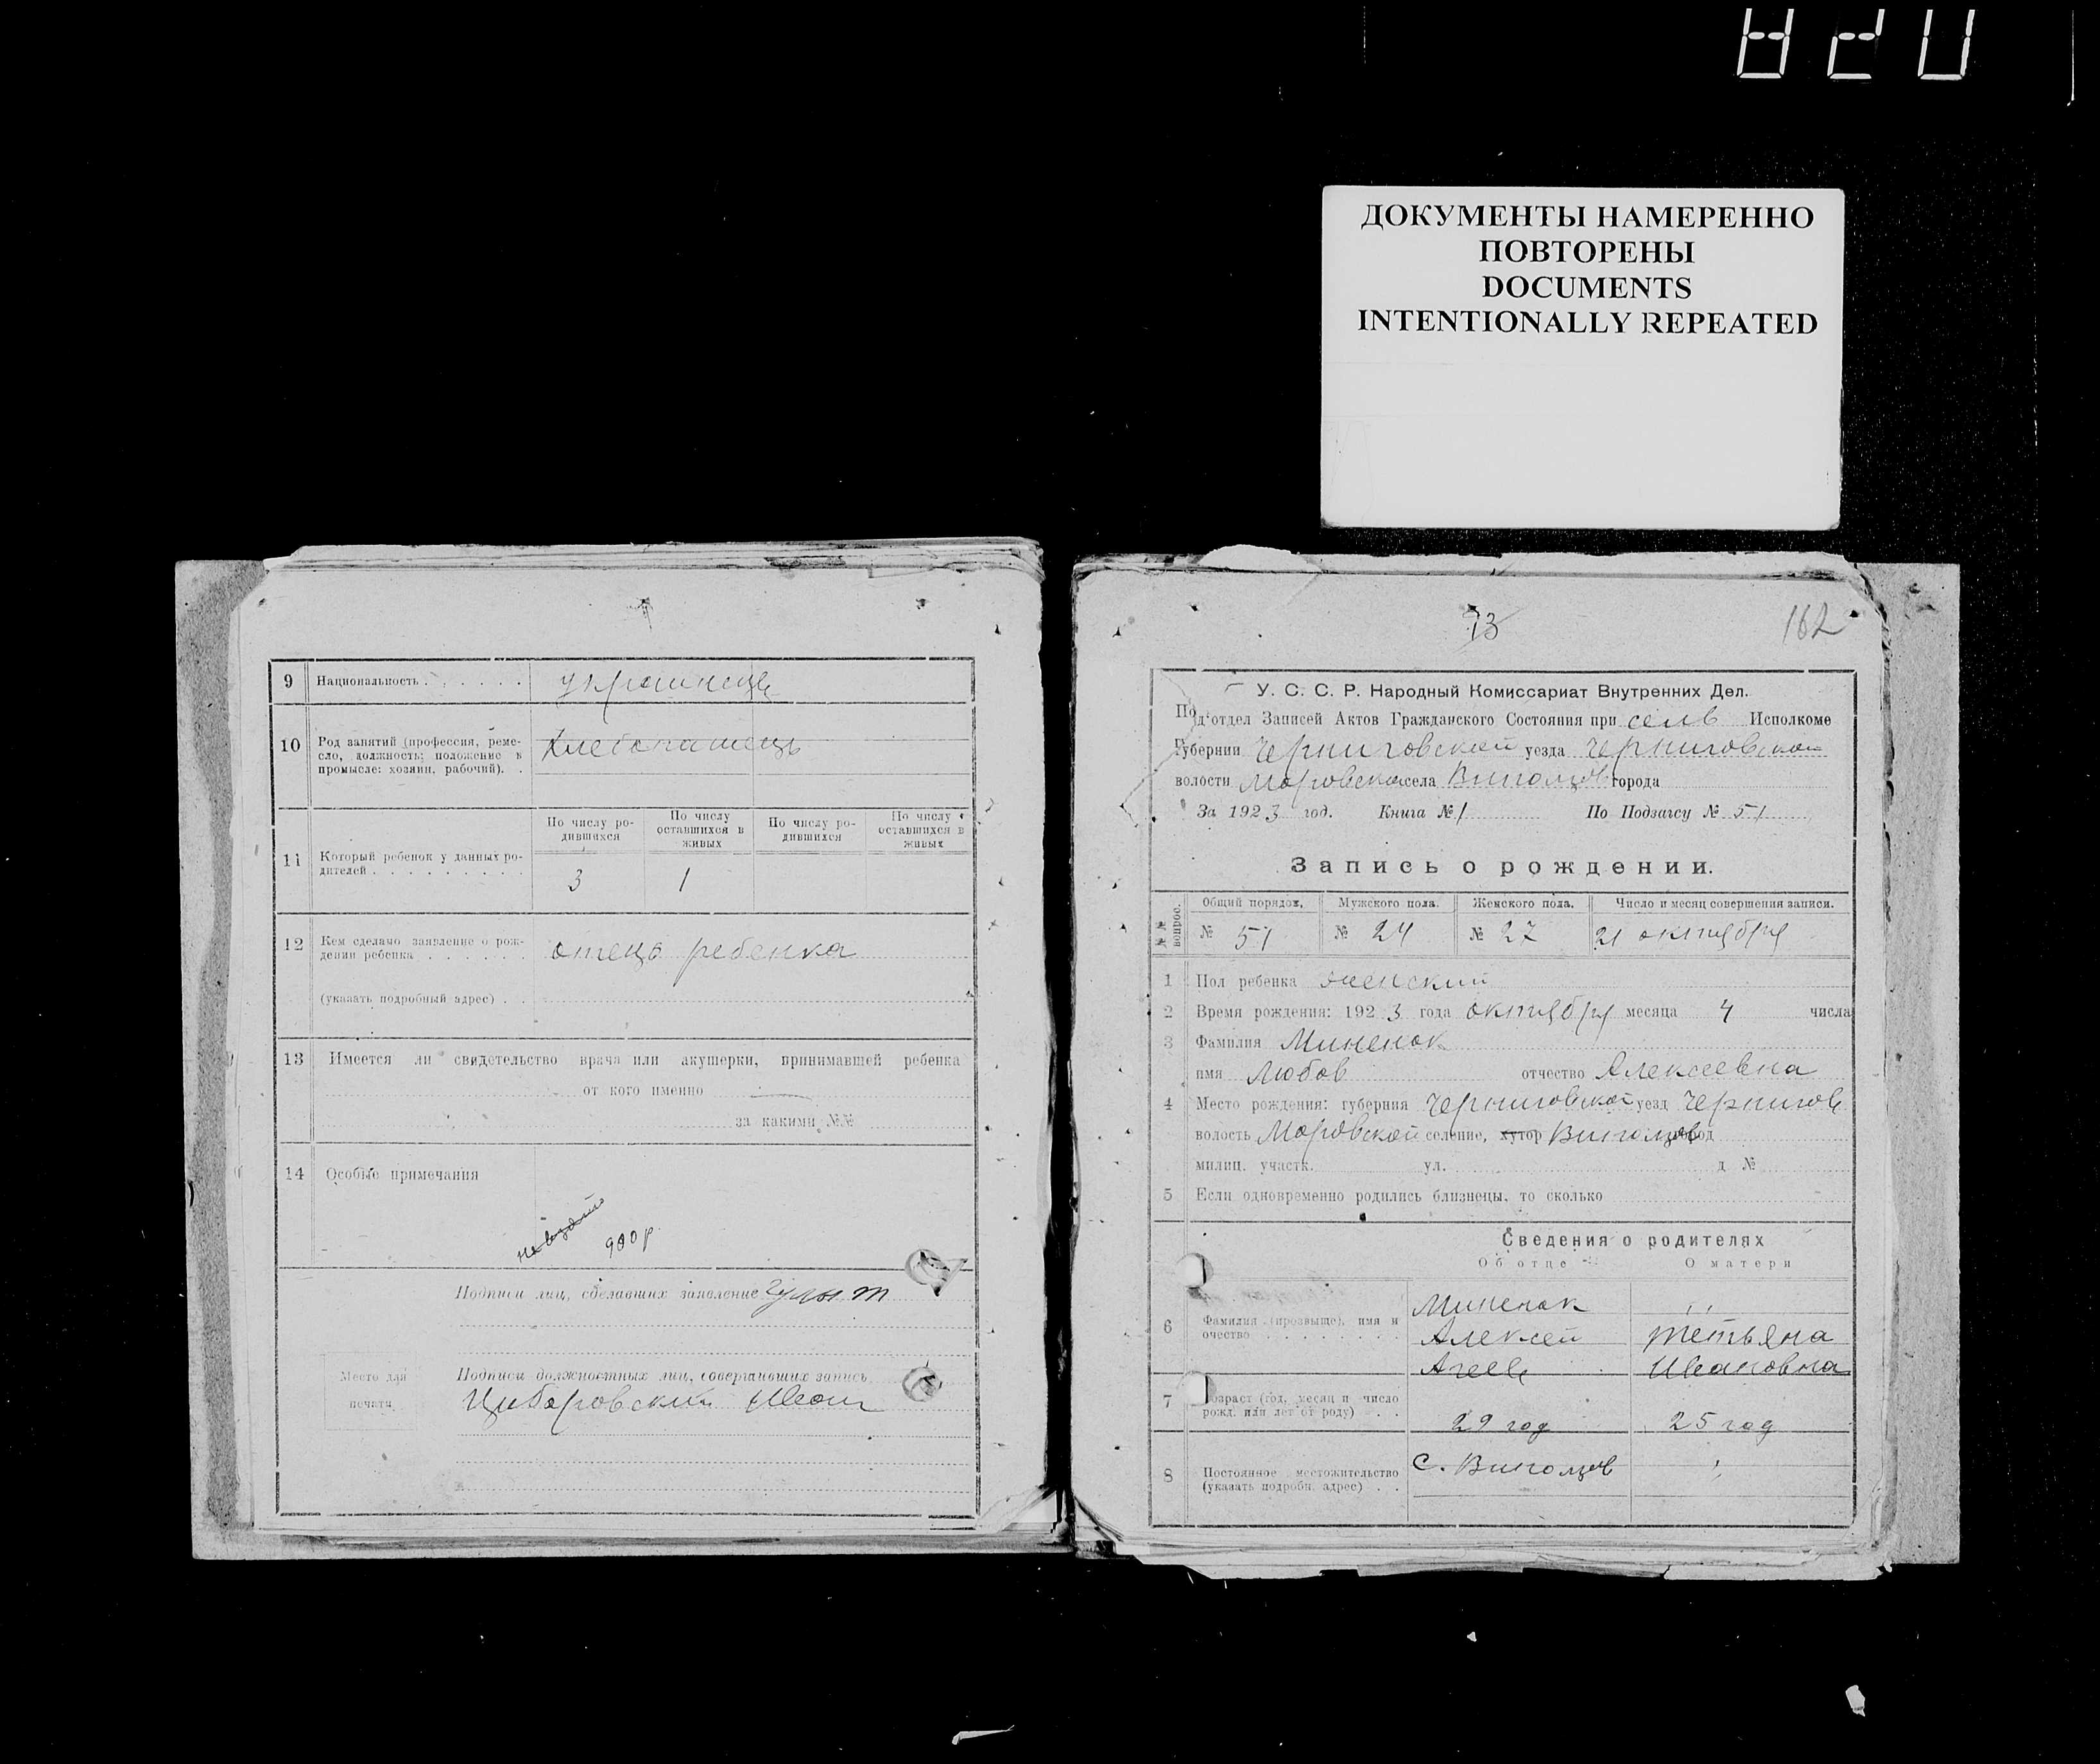 ДОКУМЕНТЫ НАМЕРЕННО
ПОВТОРЕНЫ
DOCUMENTS
INTENTIONALLY REPEATED
9 Национальность . . . . . украинець
10 Род занятий (профессия, реме-
сло, должность; положение в
промысле: хозяин, рабочий). . хлебопашець
По числу ро-
дившихся
По числу
оставшихся в
живых
По числу ро-
дившихся
По числу
оставшихся в
живых
11 Который ребенок у данных ро-
дителей . . . . . . . . . 3 1
12 Кем сделано заявление о рож-
дении ребенка . . . . . . отець ребенка
(указать подробный адрес) . .
13 Имеется ли свидетельство врача или акушерки, принимавшей ребенка
от кого именно
за какими №№
14 Особые примечания
980 р.
Подписи лиц, сделавших заявление
Место для
печати
Подписи должностных лиц, совершивших запись
Циборовский Иван
73
162
У. С. С. Р. Народный Комиссариат Внутренних Дел.
Под'отдел Записей Актов Гражданского Состояния при сельв Исполкоме
Губернии Черниговской уезда Черниговской
волости Моровской села Виползов города
За 1923 год. Книга № 1 По Подзагсу № 51
Запись о рождении.
№№ вопрос.
Общий порядок. Мужского пола. Женского пола. Число и месяц совершения записи.
№ 51 № 24 № 27 21 октября
1 Пол ребенка женский
2 Время рождения: 1923 года октября месяца 4 числа
3 Фамилия Миненок
имя Любов отчество Алексеевна
4 Место рождения: губерния Черниговской уезд Чернигов
волость Моровской селение, хутор Виползов город
милиц. участк. ул. д №
5 Если одновременно родились близнецы, то сколько
Сведения о родителях
Об отце О матери
6 Фамилия (прозвыще), имя и
очество . . . . . . . .
Миненок ,,
Алексей Тетьяна
Агеев Ивановна
7 Возраст (год, месяц и число
рожд. или лет от роду) . . 29 год 25 год
8 Постоянное местожительство
(указать подробн. адрес) . . с. Виползов ,,